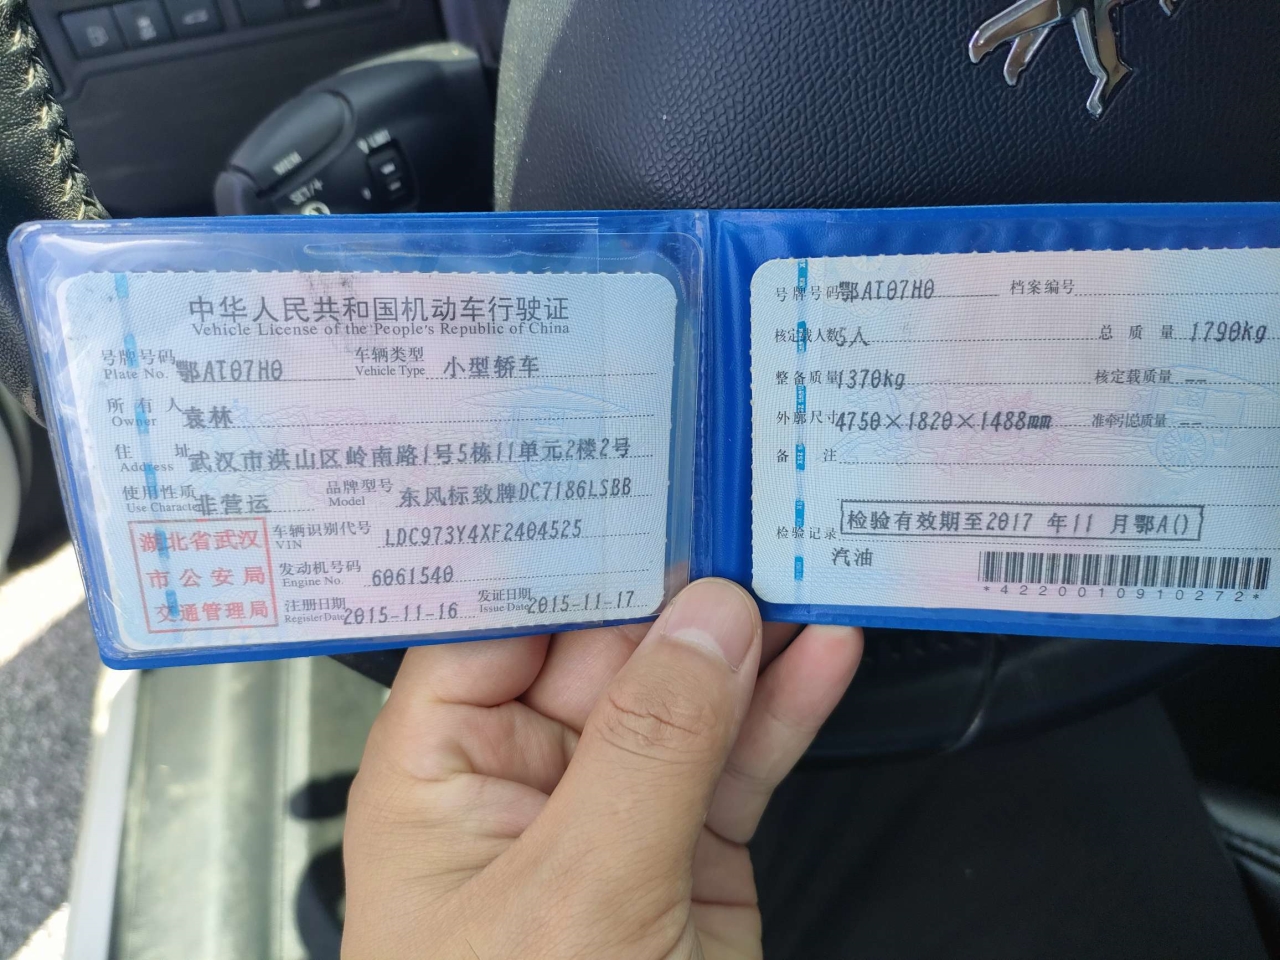 中华人民共和国机动车行驶证
Vehicle License of the People's Republic of China
号牌号码 鄂AT07H0 车辆类型 小型轿车
Plate No. Vehicle Type
所有人 袁林
Owner
住址 武汉市洪山区岭南路1号5栋11单元2楼2号
Address
使用性质 非营运 品牌型号 东风标致牌DC7186LSBB
Use Character Model
湖北省武汉
市公安局
交通管理局
车辆识别代号 LDC973Y4XF2404525
VIN
发动机号码 6061540
Engine No.
注册日期 2015-11-16 发证日期 2015-11-17
Register Date Issue Date
号牌号码 鄂AT07H0 档案编号
核定载人数 5人 总质量 1790kg
整备质量 1370kg 核定载质量 --
外廓尺寸 4750×1820×1488mm 准牵引总质量 --
备注
检验记录 检验有效期至2017 年11 月鄂A()
汽油
*4220010910272*
SET/+